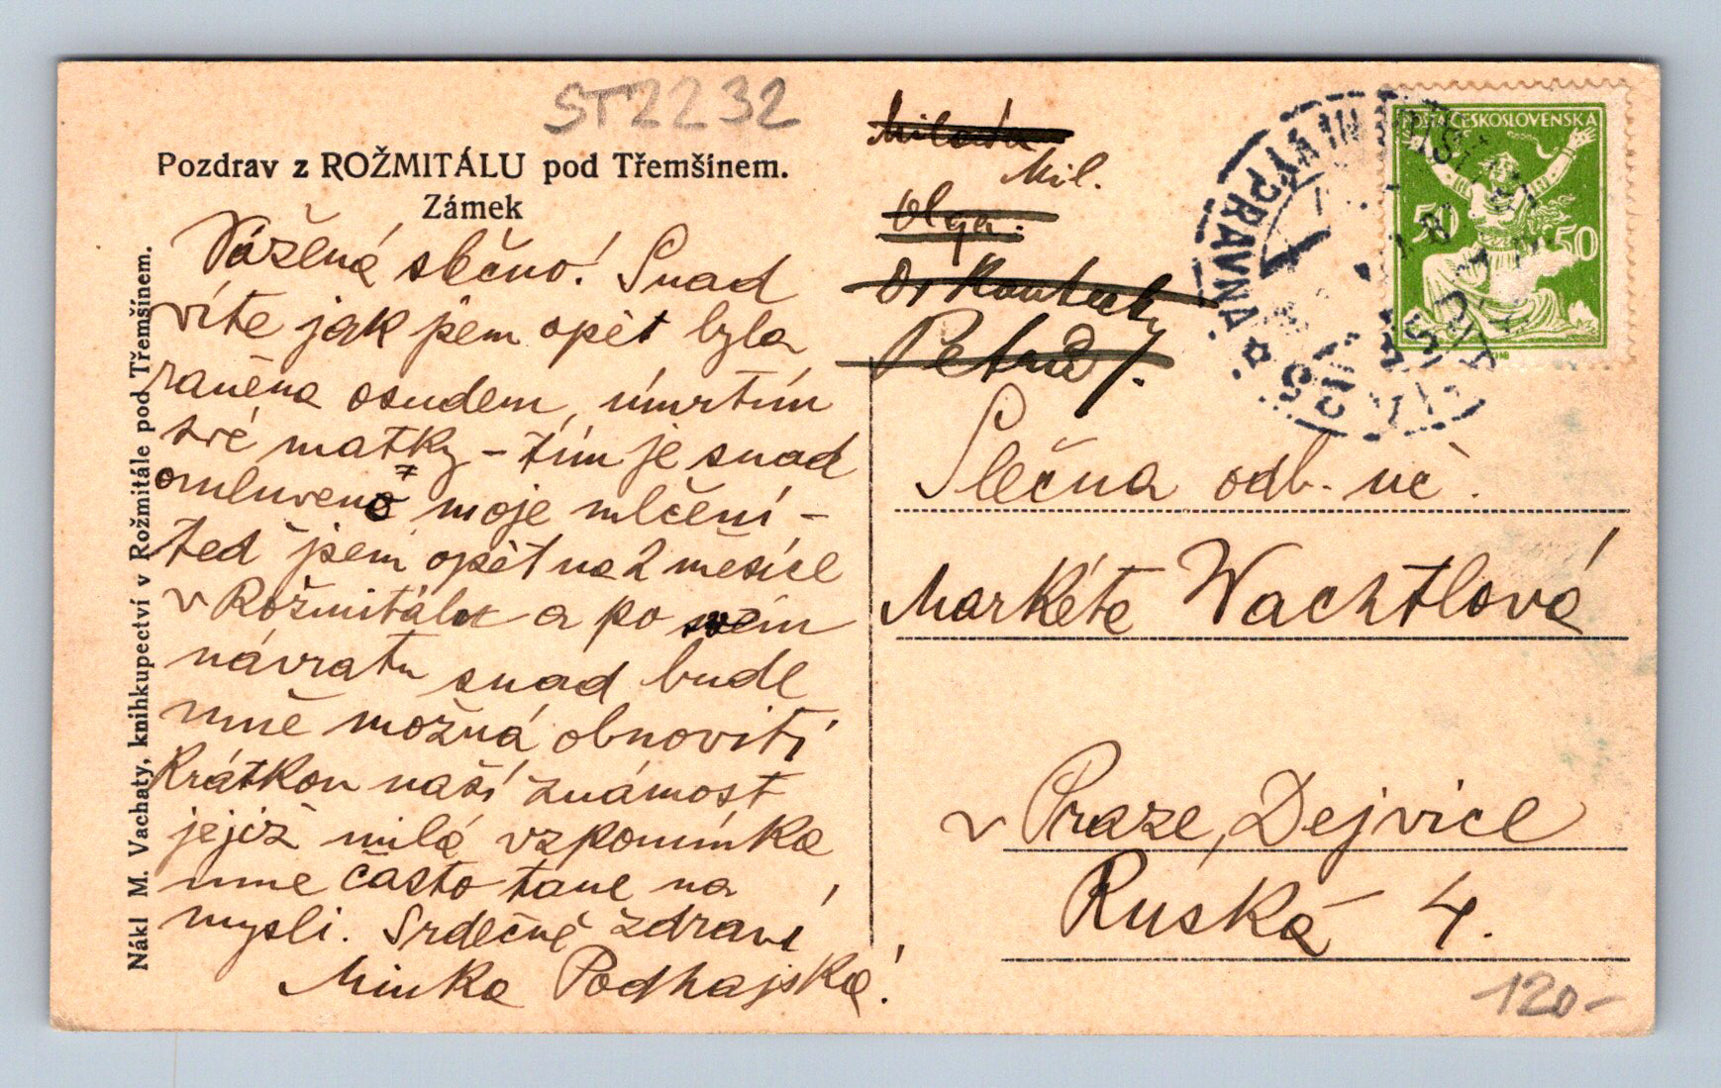 ST2232
Pozdrav z ROŽMITÁLU pod Třemšínem.
Zámek
Vážená slečno! Snad
víte jak jsem opět byla
raněna osudem, úmrtím
své matky – tím je snad
omluveno moje mlčení –
teď jsem opět na 2 měsíce
v Rožmitálu a po svém
návratu snad bude
mně možná obnoviti
krátkou naší známost
jejíž milá vzpomínka
mne často tane na
mysli. Srdečně zdraví
Minka Podhajská!
Nákl M. Vachaty, knihkupectví v Rožmitále pod Třemšínem.
Milada
Mil.
Olga.
Dr
POŠTA ČESKOSLOVENSKÁ
50 50
VÝPRAVNA
Slečna odb. uč.
Markéta Wachtlová
v Praze, Dejvice
Ruská 4.
120-